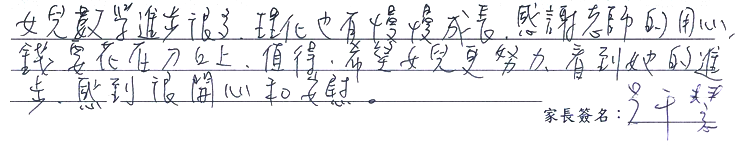 女兒數學進步很多.理化也有慢慢成長.感謝老師的用心,
錢要花在刀口上.值得.希望女兒更努力.看到她的進
步.感到很開心和安慰。
家長簽名: